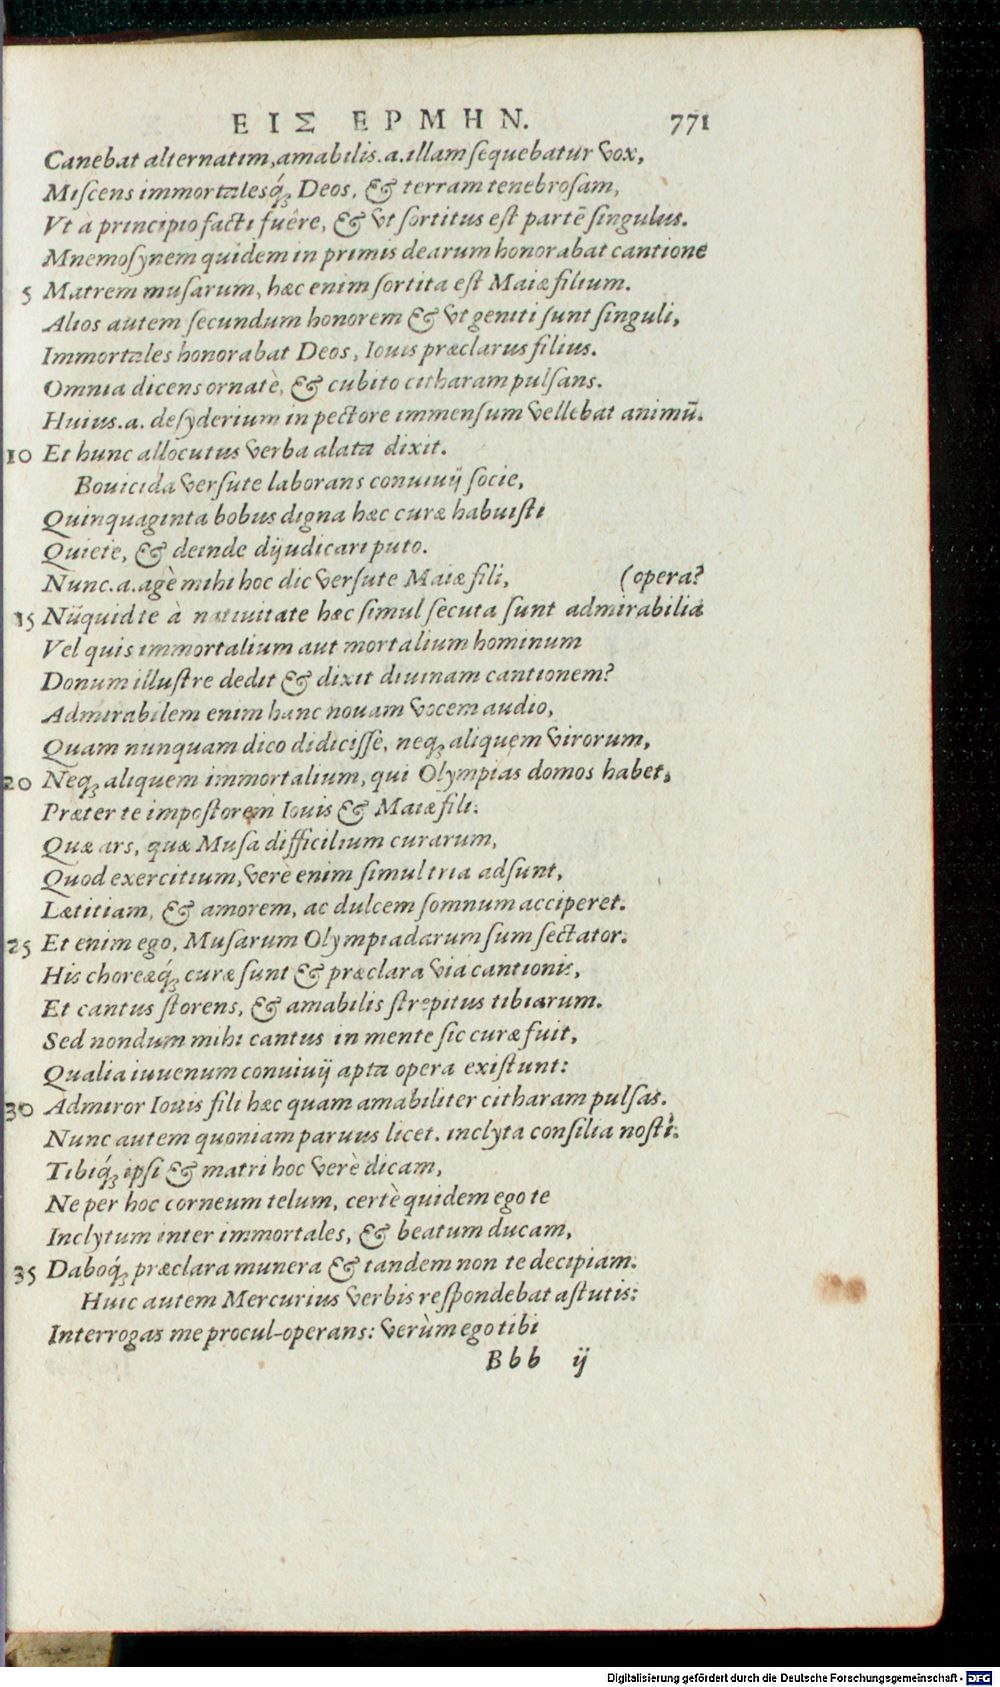 ΕΙΣ ΕΡΜΗΝ. 771
Canebat alternatim, amabilis.a.illam sequebatur vox,
Miscens immortalesq́; Deos, & terram tenebrosam,
Vt à principio facti fuêre, & vt sortitus est partē singulus.
Mnemosynem quidem in primis dearum honorabat cantione
5 Matrem musarum, hæc enim sortita est Maiæ filium.
Alios autem secundum honorem & vt geniti sunt singuli,
Immortales honorabat Deos, Iouis præclarus filius.
Omnia dicens ornatè, & cubito citharam pulsans.
Huius.a. desyderium in pectore immensum vellebat animū.
10 Et hunc allocutus verba alata dixit.
Bouicida versute laborans conuiuij socie,
Quinquaginta bobus digna hæc curæ habuisti
Quiete, & deinde dijudicari puto.
Nunc.a.agè mihi hoc dic versute Maiæ fili, (opera?
15 Nūquid te à natiuitate hæc simul secuta sunt admirabilia
Vel quis immortalium aut mortalium hominum
Donum illustre dedit & dixit diuinam cantionem?
Admirabilem enim hanc nouam vocem audio,
Quam nunquam dico didicisse, neq; aliquem virorum,
20 Neq; aliquem immortalium, qui Olympias domos habet,
Præter te impostorem Iouis & Maiæ fili:
Quæ ars, quæ Musa difficilium curarum,
Quod exercitium, verè enim simul tria adsunt,
Lætitiam, & amorem, ac dulcem somnum acciperet.
25 Et enim ego, Musarum Olympiadarum sum sectator:
His choreæq́; curæ sunt & præclara via cantionis,
Et cantus florens, & amabilis strepitus tibiarum.
Sed nondum mihi cantus in mente sic curæ fuit,
Qualia iuuenum conuiuij apta opera existunt:
30 Admiror Iouis fili hæc quam amabiliter citharam pulsas.
Nunc autem quoniam paruus licet. inclyta consilia nosti:
Tibiq́; ipsi & matri hoc verè dicam,
Ne per hoc corneum telum, certè quidem ego te
Inclytum inter immortales, & beatum ducam,
35 Daboq́; præclara munera & tandem non te decipiam:
Huic autem Mercurius verbis respondebat astutis:
Interrogas me procul-operans: verùm ego tibi
Bbb ij
Digitalisierung gefördert durch die Deutsche Forschungsgemeinschaft - DFG